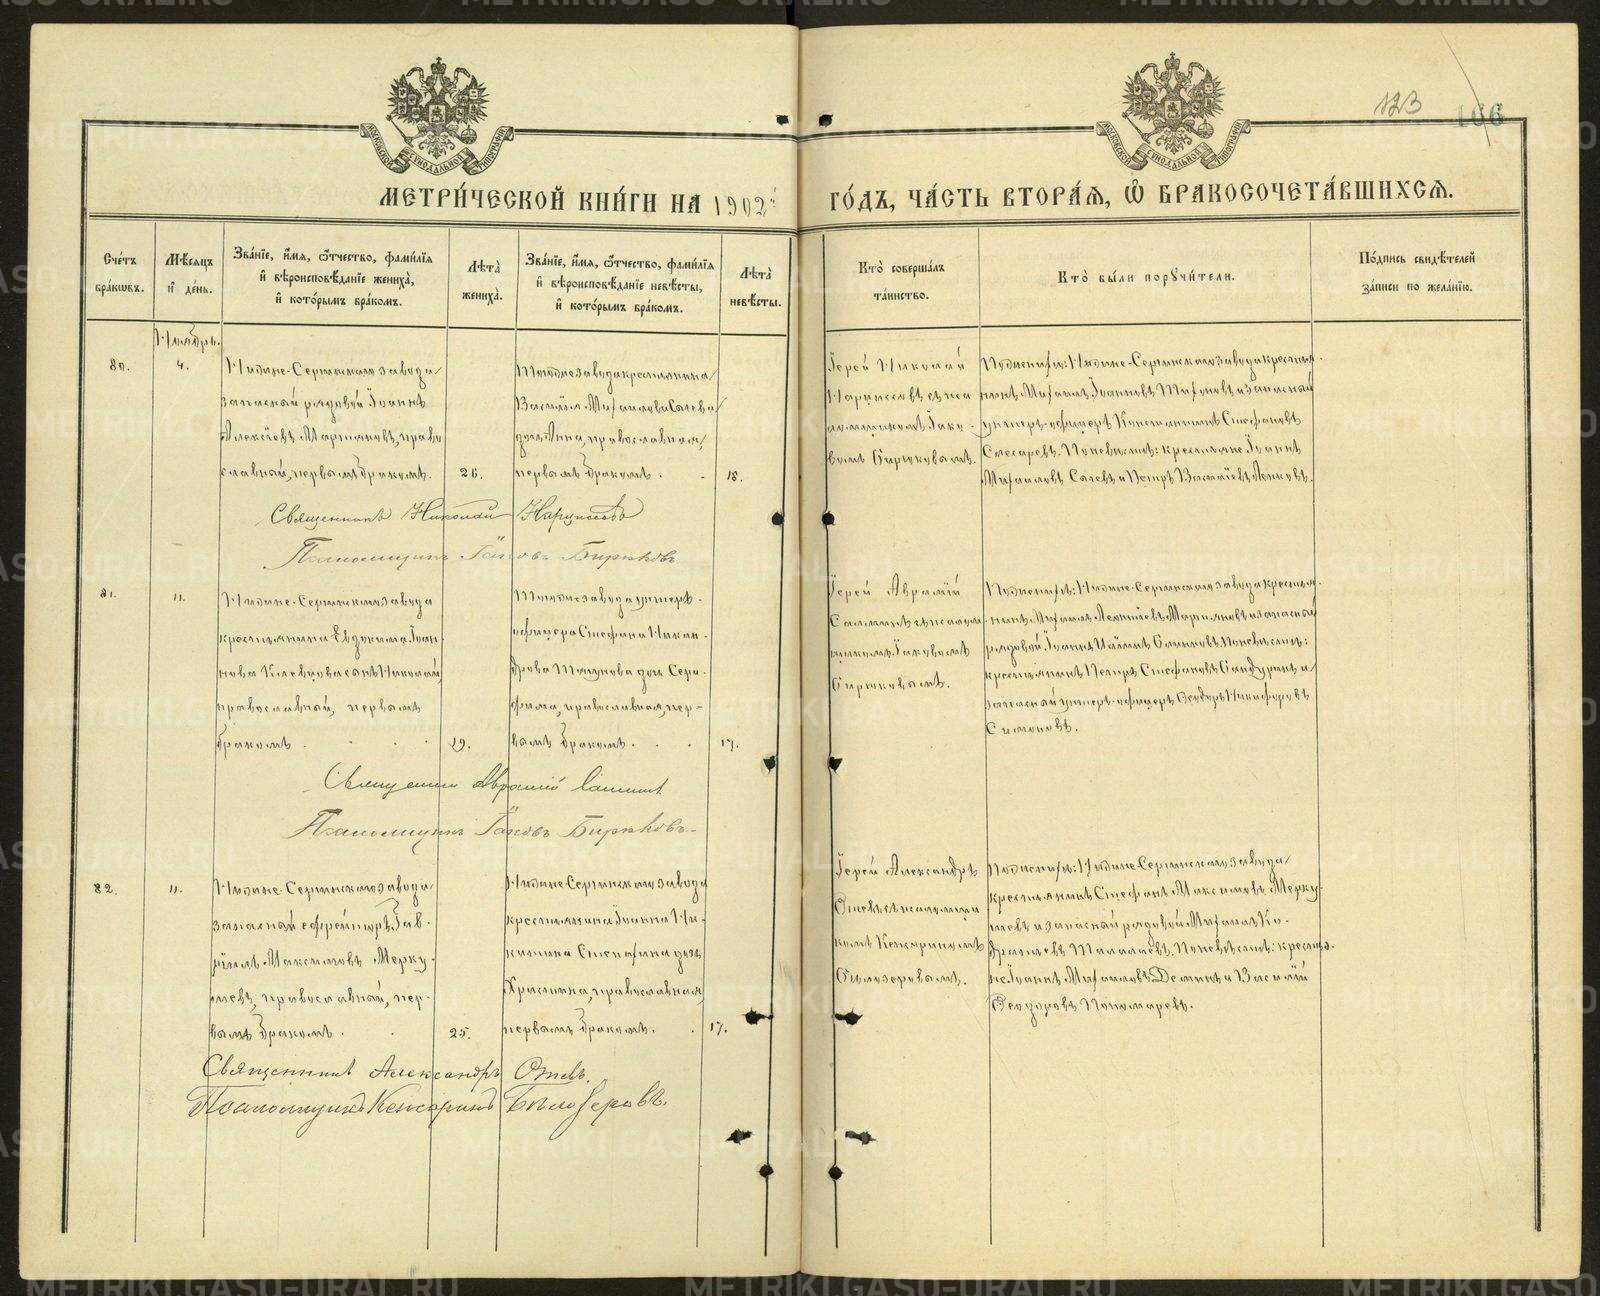 123
166
МЕТРИ́ЧЕСКОЙ КНИ́ГИ НА 1902й
ГО́ДЪ, ЧА́СТЬ ВТОРА́Я, Ѡ҆ БРАКОСОЧЕТА́ВШИХСЯ.
Сче́тъ бра́кѡвъ.
Мѣ́сяцъ и҆ де́нь.
Зва́нїе, и҆́мя, ѻ҆́тчество, фами́лїя
и҆ вѣроисповѣ́данїе жениха̀,
и҆ кото́рымъ бра́комъ.
Лѣ́та жениха̀.
Зва́нїе, и҆́мя, ѻ҆́тчество, фами́лїя
и҆ вѣроисповѣ́данїе невѣ́сты,
и҆ кото́рымъ бра́комъ.
Лѣ́та невѣ́сты.
Кто̀ соверша́лъ та́инство.
Кто̀ бы́ли поручи́тели.
По́дпись свидѣ́телей
за́писи по жела́нїю.
Ноябрь.
80.
4.
Нижне-Сергинскаго завода
запасный рядовой Іоаннъ
Алексіевъ Мартьяновъ, право
славный, первымъ бракомъ.
26.
Тогоже завода крестьянина
Василія Михаилова Сычева
дочь Анна, православная,
первымъ бракомъ.
18.
Іерей Николай
Нарциссовъ съ пса
ломщикомъ Іако-
вомъ Бирюковымъ.
По женихѣ: Нижне-Сергинскаго завода крестья-
нинъ Михаилъ Іоанновъ и запасный
унтеръ-офицеръ Константинъ Стефановъ
По невѣстѣ: крестьяне Іоаннъ
Михаиловъ Сычевъ и Петръ Василіевъ
Священникъ Николай Нарциссовъ
Псаломщикъ Іаковъ Бирюковъ
81.
11.
Нижне-Сергинскаго завода
крестьянина Евдокима Іоан-
нова Клевцова сынъ Николай,
православный, первымъ
бракомъ.
19.
Тогоже завода унтеръ-
офицера Стефана Никан-
дрова дочь Сера-
фима, православная, пер-
вымъ бракомъ.
17.
Іерей Авраамій
съ псалом-
щикомъ Іаковомъ
Бирюковымъ.
По женихѣ: Нижне-Сергинскаго завода крестья-
нинъ Михаилъ Мартьяновъ и запасный
рядовой Іоаннъ По невѣстѣ:
крестьянинъ Петръ Стефановъ и
запасный унтеръ-офицеръ Ѳеодоръ Никифоровъ
Симоновъ.
Священникъ Авраамій
Псаломщикъ Іаковъ Бирюковъ
82.
11.
Нижне-Сергинскаго завода
запасный ефрейторъ Гав-
ріилъ Максимовъ Мерку-
шевъ, православный, пер-
вымъ бракомъ.
25.
Нижне-Сергинскаго завода
крестьянина Іоанна Ни-
дочь
Христина, православная,
первымъ бракомъ.
17.
Іерей Александръ
съ псаломщи
комъ Кенсориномъ
Бѣлозеровымъ.
По женихѣ: Нижне-Сергинскаго завода
крестьянинъ Стефанъ Максимовъ Мерку-
шевъ и запасный рядовой Михаилъ
По невѣстѣ: крестья-
не Іоаннъ Михаиловъ и Василій
Ѳеодоровъ Пономаревъ.
Священникъ Александръ
Псаломщикъ Кенсоринъ Бѣлозеровъ.